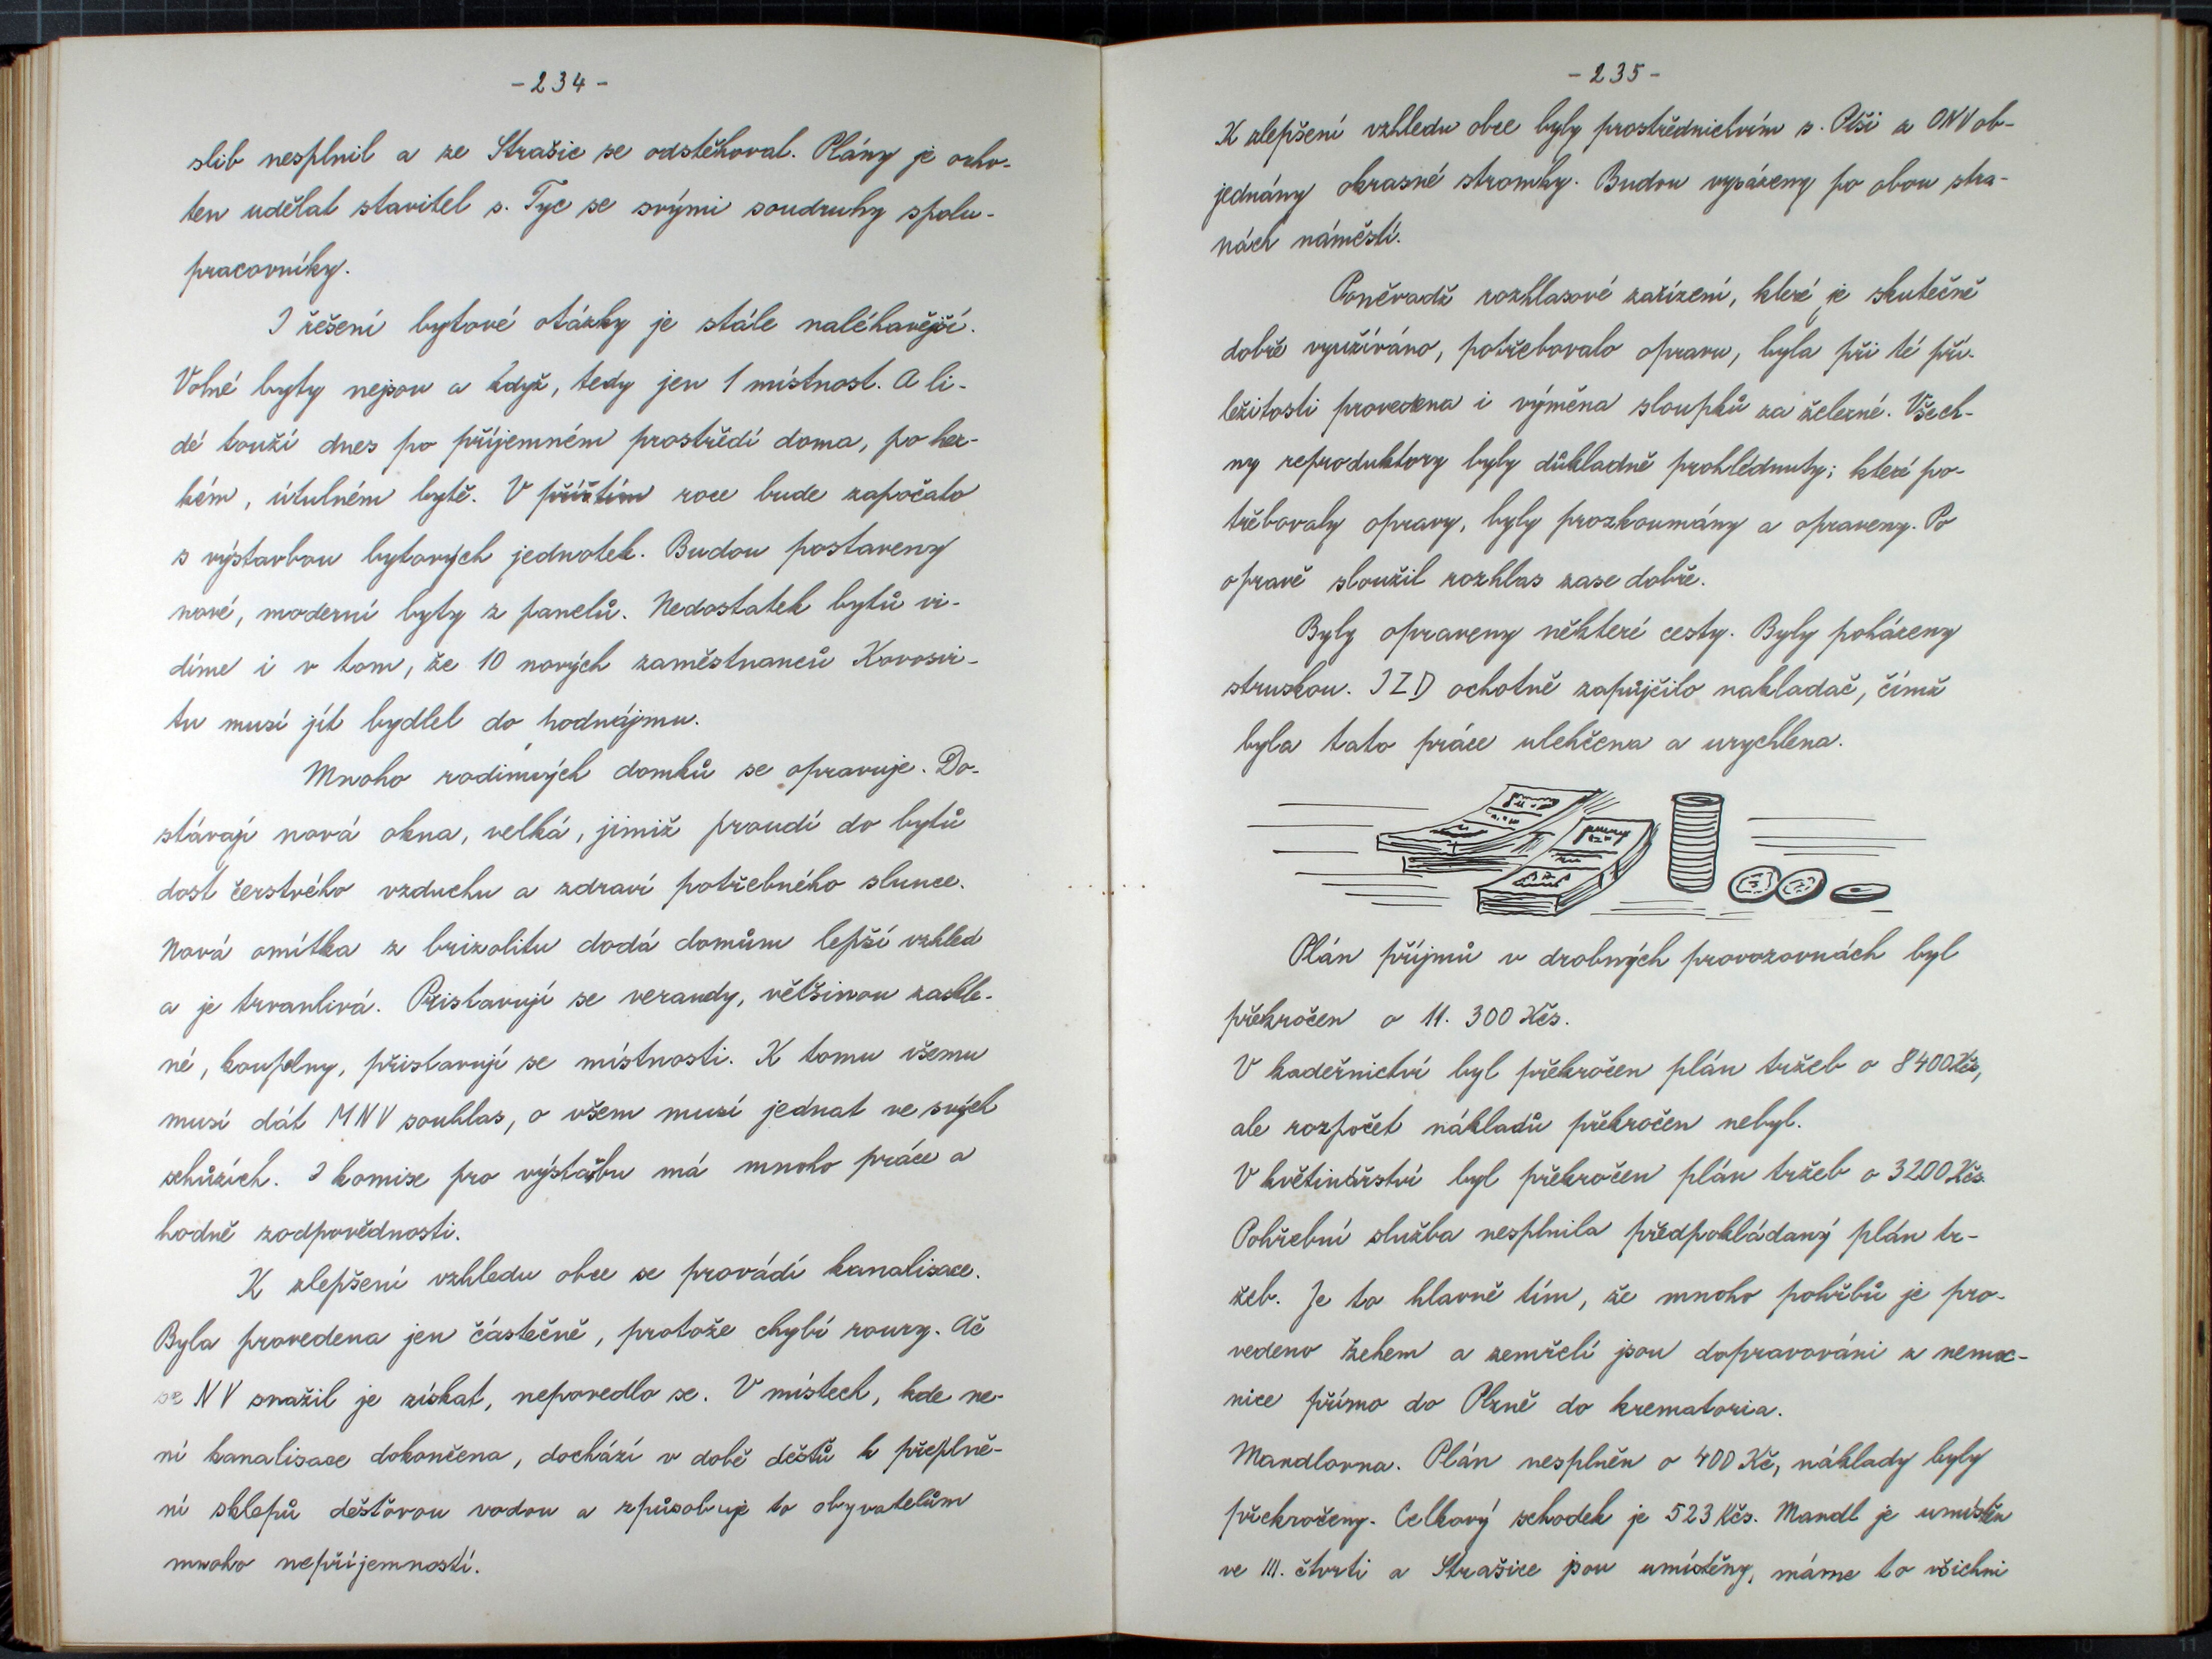 - 234 -
slib nesplnil a ze Strašic se odstěhoval. Plány je ocho-
ten udělat stavitel s. Tyc se svými soudruhy spolu-
pracovníky.
I řešení bytové otázky je stále naléhavější.
Volné byty nejsou a když, tedy jen 1 místnost. A li-
dé touží dnes po příjemném prostředí doma, po hez-
kém, útulném bytě. V příštím roce bude započato
s výstavbou bytových jednotek. Budou postaveny
nové, moderní byty z panelů. Nedostatek bytů vi-
díme i v tom, že 10 nových zaměstnanců Kovosvi-
tu musí jít bydlet do podnájmu.
Mnoho rodinných domků se opravuje. Do-
stávají nová okna, velká, jimiž proudí do bytů
dost čerstvého vzduchu a zdraví potřebného slunce.
Nová omítka z brizolitu dodá domům lepší vzhled
a je trvanlivá. Přistavují se verandy, většinou zaskle-
né, koupelny, přistavují se místnosti. K tomu všemu
musí dát MNV souhlas, o všem musí jednat ve svých
schůzích. I komise pro výstavbu má mnoho práce a
hodně zodpovědnosti.
K zlepšení vzhledu obce se provádí kanalisace.
Byla provedena jen částečně, protože chybí roury. Ač
se NV snažil je získat, nepovedlo se. V místech, kde ne-
ní kanalisace dokončena, dochází v době dešťů k přeplně-
ní sklepů dešťovou vodou a způsobuje to obyvatelům
mnoho nepříjemností.
- 235 -
K zlepšení vzhledu obce byly prostřednictvím s. Ptši z ONV ob-
jednány okrasné stromky. Budou vysázeny po obou stra-
nách náměstí.
Poněvadž rozhlasové zařízení, které je skutečně
dobře využíváno, potřebovalo opravu, byla při té pří-
ležitosti provedena i výměna sloupků za železné. Všech-
ny reproduktory byly důkladně prohlédnuty; které po-
třebovaly opravy, byly prozkoumány a opraveny. Po
opravě sloužil rozhlas zase dobře.
Byly opraveny některé cesty. Byly poházeny
struskou. JZD ochotně zapůjčilo nakladač, čímž
byla tato práce ulehčena a urychlena.
Plán příjmů v drobných provozovnách byl
překročen o 11. 300 Kčs.
V kadeřnictví byl překročen plán tržeb o 8400 Kčs,
ale rozpočet nákladů překročen nebyl.
V květinářství byl překročen plán tržeb o 3200 Kčs.
Pohřební služba nesplnila předpokládaný plán tr-
žeb. Je to hlavně tím, že mnoho pohřbů je pro-
vedeno žehem a zemřelí jsou dopravováni z nemoc-
nice přímo do Plzně do krematoria.
Mandlovna. Plán nesplněn o 400 Kč, náklady byly
překročeny. Celkový schodek je 523 Kčs. Mandl je umístěn
ve III. čtvrti a Strašice jsou umístěny, máme to všichni